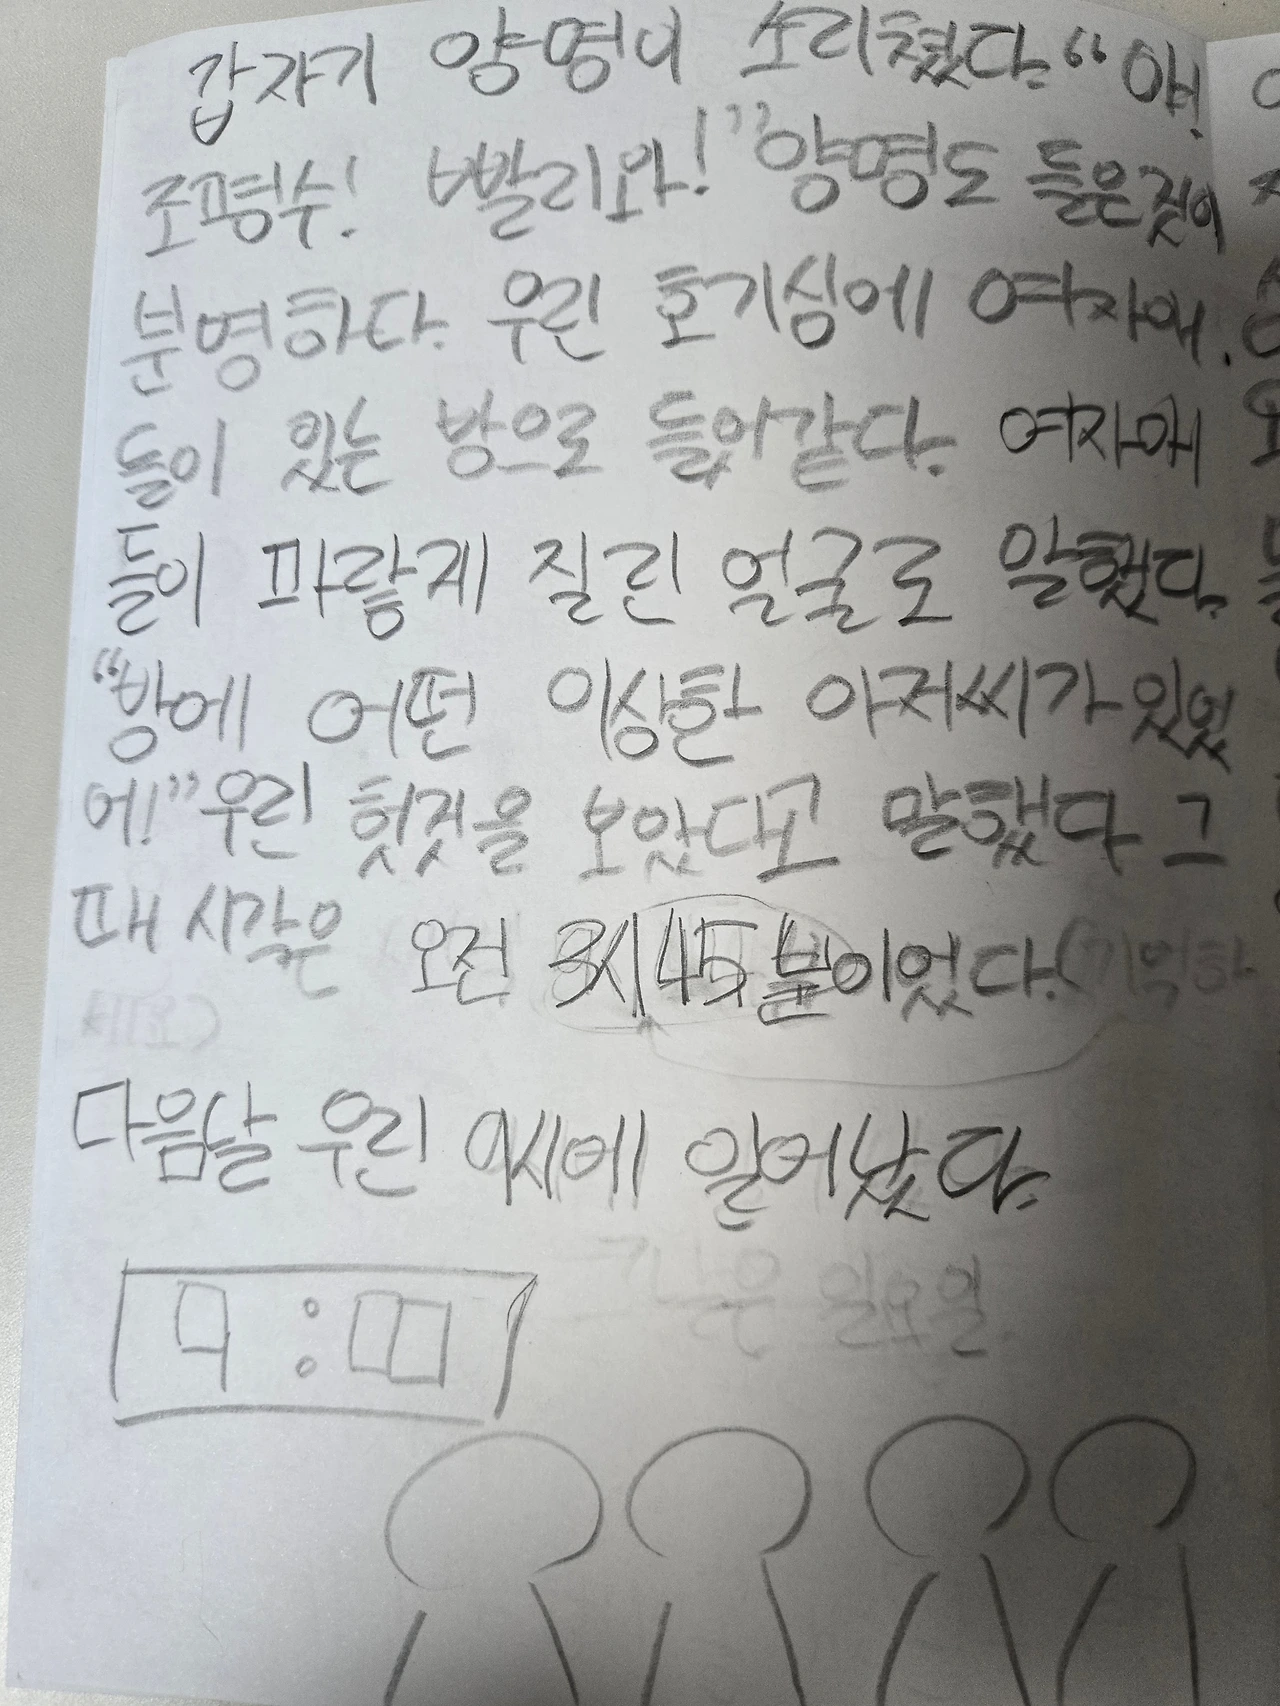 갑자기 양명이 소리쳤다. “야!
조평수! 빨리와!” 양명도 들은것이
분명하다. 우린 호기심에 여자애
들이 있는 방으로 들어같다. 여자애
들이 파랗게 질린 얼굴로 말했다.
“방에 어떤 이상한 아저씨가 있었
어!” 우린 헛것을 보았다고 말했다 그
때 시각은 오전 3시 45분이었다. (기억하
세요)
다음날 우린 9시에 일어났다.
9:00
그날은 일요일.